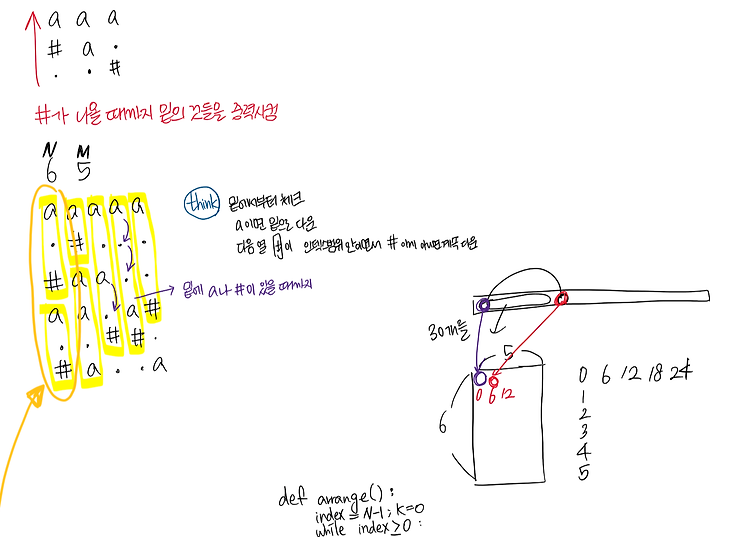 a a a
# a .
. . #
#가 나올 때까지 밑의 것들을 중력시험
N M
6 5
a a a a a
. # . . .
# a a . .
a a . a #
. . # # .
# a . . a
think 밑에서부터 체크
a이면 밑으로 다운
다음 열 #이 인덱스범위 안이면서 #이 아니면 계속 다운
밑에 a나 #이 있을 때까지
30개를
5
6
0 6 12
0 6 12 18 24
1
2
3
4
5
def arrange():
index = N-1; k=0
while index ≥ 0 :